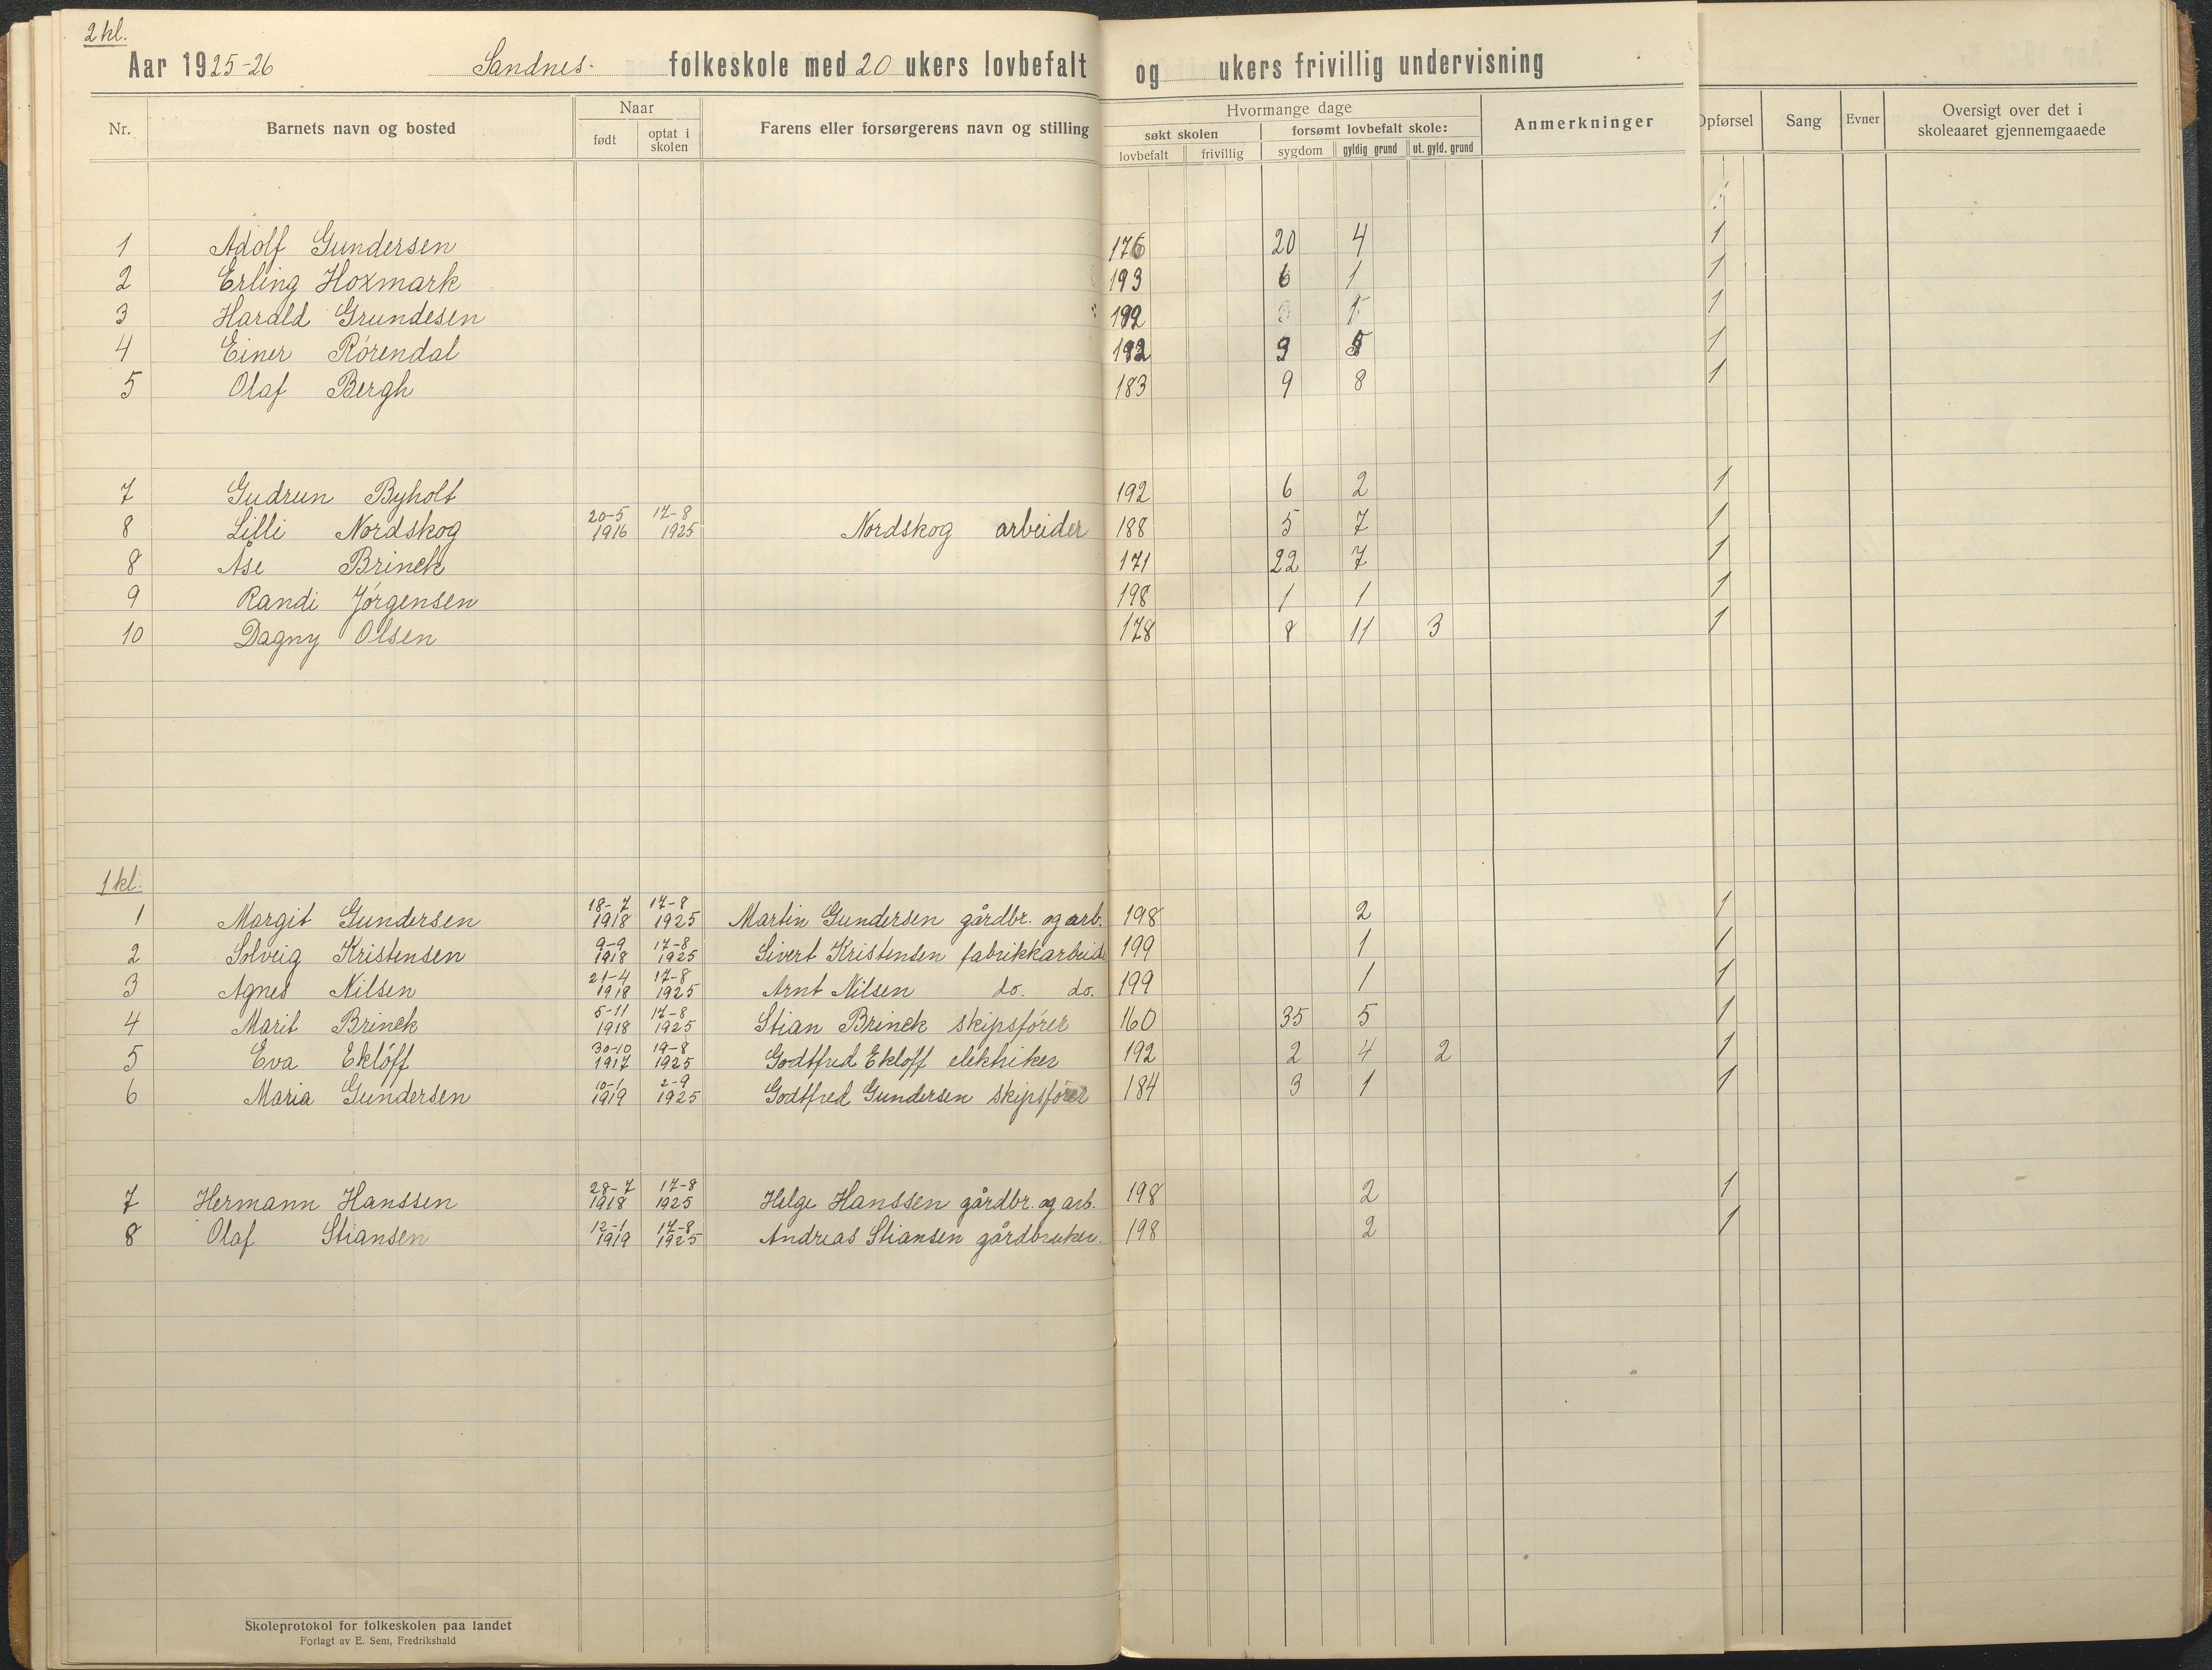 2 kl.
Aar 1925-26 Sandnes. folkeskole med 20 ukers lovbefalt og ukers frivillig undervisning
Nr. Barnets navn og bosted Naar født optat i skolen Farens eller forsørgerens navn og stilling Hvormange dage søkt skolen lovbefalt frivillig forsømt lovbefalt skole: sygdom gyldig grund ut. gyld. grund Anmerkninger Opførsel Sang Evner Oversigt over det i skoleaaret gjennemgaaede
1 Adolf Gundersen 176 20 4 1
2 Erling Hoxmark 193 6 1 1
3 Harald Grundesen 192 1 1
4 Einer Rørendal 192 9 1
5 Olaf Bergh 183 9 8 1
7 Gudrun Byholt 192 6 2 1
8 Lilli Nordskog 20-5 1916 17-8 1925 Nordskog arbeider 188 5 7 1
8 Åse Brinck 171 22 7 1
9 Randi Jørgensen 198 1 1 1
10 Dagny Olsen 178 8 11 3 1
1 kl.
1 Margit Gundersen 18-7 1918 17-8 1925 Martin Gundersen gårdbr. og arb. 198 2 1
2 Solveig Kristensen 9-9 1918 17-8 1925 Sivert Kristensen fabrikkarbeide 199 1 1
3 Agnes Nilsen 21-4 1918 17-8 1925 Arnt Nilsen do. do. 199 1 1
4 Marit Brinck 5-11 1918 17-8 1925 Stian Brinck skipsfører 160 35 5 1
5 Eva Ekløff 30-10 1917 19-8 1925 Godtfred Ekloff elektriker 192 2 4 2 1
6 Maria Gundersen 10-1 1919 2-9 1925 Godtfred Gundersen skipsfører 184 3 1 1
7 Hermann Hanssen 28-7 1918 17-8 1925 Helge Hanssen gårdbr. og arb. 198 2 1
8 Olaf Stiansen 12-1 1919 17-8 1925 Andreas Stiansen gårdbruker. 198 2 1
Skoleprotokol for folkeskolen paa landet
Forlagt av E. Sem, Fredrikshald